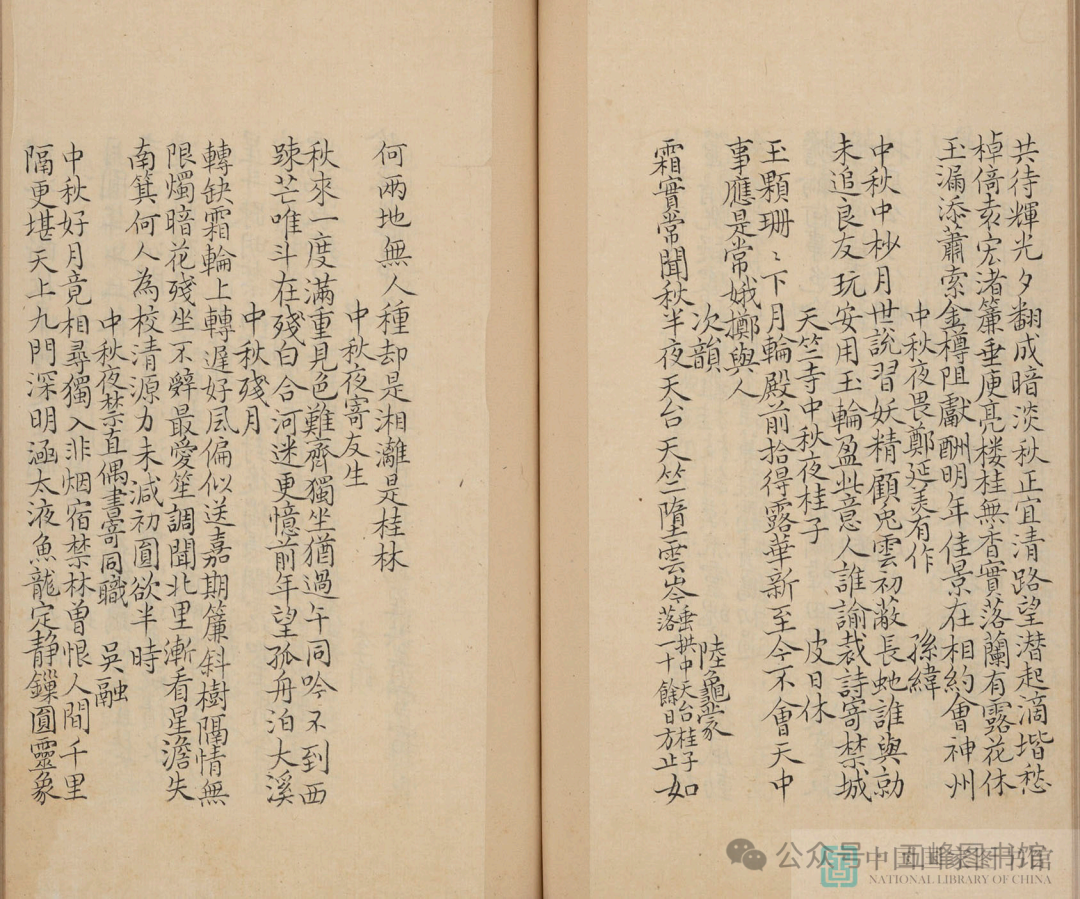 共待輝光夕翻成暗淡秋正宜清路望潜起滴堦愁
棹倚袁宏渚簾垂庾亮楼桂無香實落蘭有露花休
玉漏添蕭索金樽阻獻酬明年佳景在相約會神州
中秋夜畏鄭延美有作 孫緯
中秋中杪月世說習妖精顧兎雲初蔽長虵誰與勍
未追良友玩安用玉輪盈此意人誰諭裁詩寄禁城
天竺寺中秋夜桂子 皮日休
玉顆珊〻下月輪殿前拾得露華新至今不會天中
事應是常娥擲與人
次韻 陸龜蒙
霜實常聞秋半夜天台天竺墮雲岑垂拱中天台桂子落一十餘日方止如
何兩地無人種却是湘灕是桂林
中秋夜寄友生
秋來一度滿重見色難齊獨坐猶過午同吟不到西
踈芒唯斗在殘白合河迷更憶前年望孤舟泊大溪
中秋殘月
轉缺霜輪上轉遲好風偏似送嘉期簾斜樹隔情無
限燭暗花殘坐不辤最愛笙調聞北里漸看星澹失
南箕何人為校清源力未減初圓欲半時
中秋夜禁直偶書寄同職 吳融
中秋好月竟相尋獨入非烟宿禁林曾恨人間千里
隔更堪天上九門深明涵太液魚龍定静鏁圓靈象
公众号·西峰图书馆
中国国家图书馆
NATIONAL LIBRARY OF CHINA